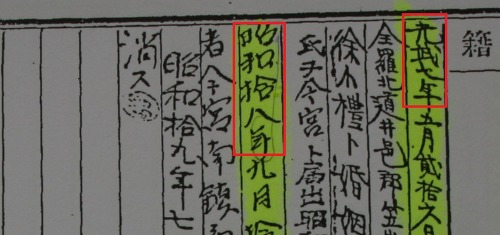 籍
光武七年五月貳拾六日
全羅北道井邑郡笠
徐小禮ト婚姻
氏ヲ今宮ト届出昭
昭和拾八年九月拾
者今宮南鎮
昭和拾九年七
消ス